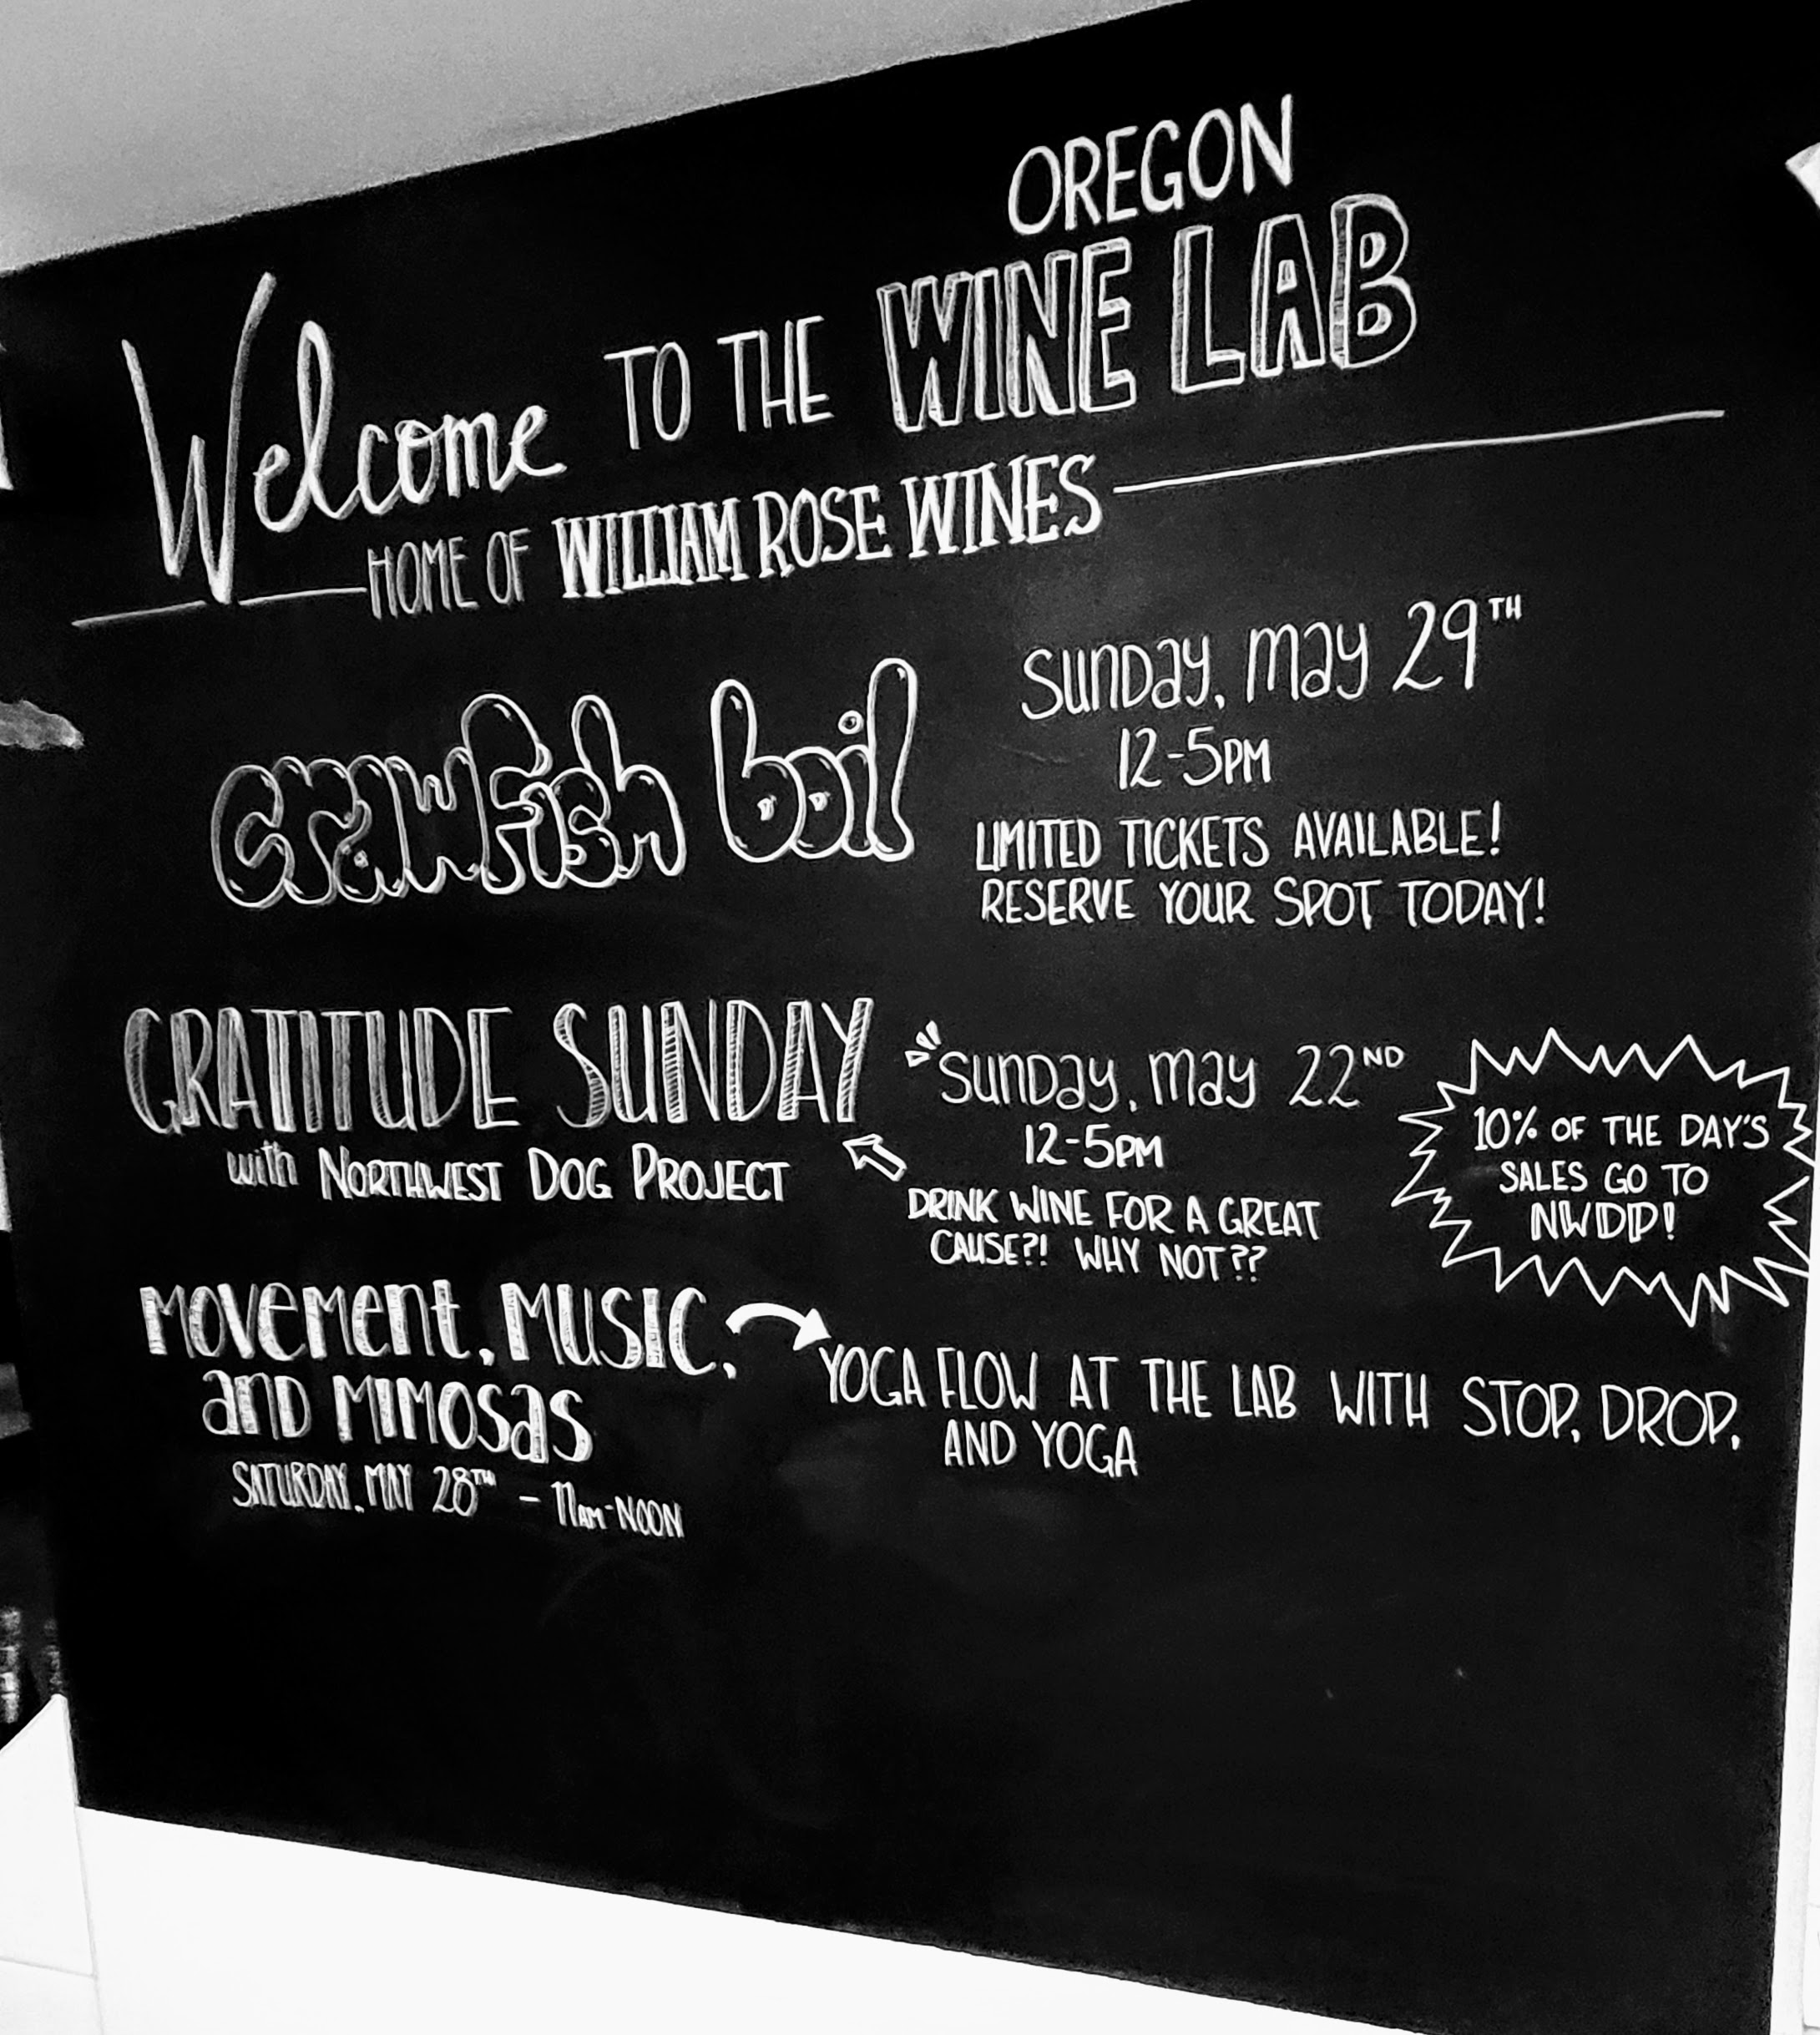 Welcome TO THE OREGON WINE LAB
HOME OF WILLIAM ROSE WINES
crawfish boil
Sunday, may 29TH
12-5PM
LIMITED TICKETS AVAILABLE!
RESERVE YOUR SPOT TODAY!
GRATITUDE SUNDAY
with NORTHWEST DOG PROJECT
Sunday, may 22ND
12-5PM
DRINK WINE FOR A GREAT
CAUSE?! WHY NOT??
10% OF THE DAY'S
SALES GO TO
NWDP!
MOVEMENT, MUSIC,
and MIMOSAS
SATURDAY, MAY 28TH - 11AM-NOON
YOGA FLOW AT THE LAB WITH STOP, DROP,
AND YOGA